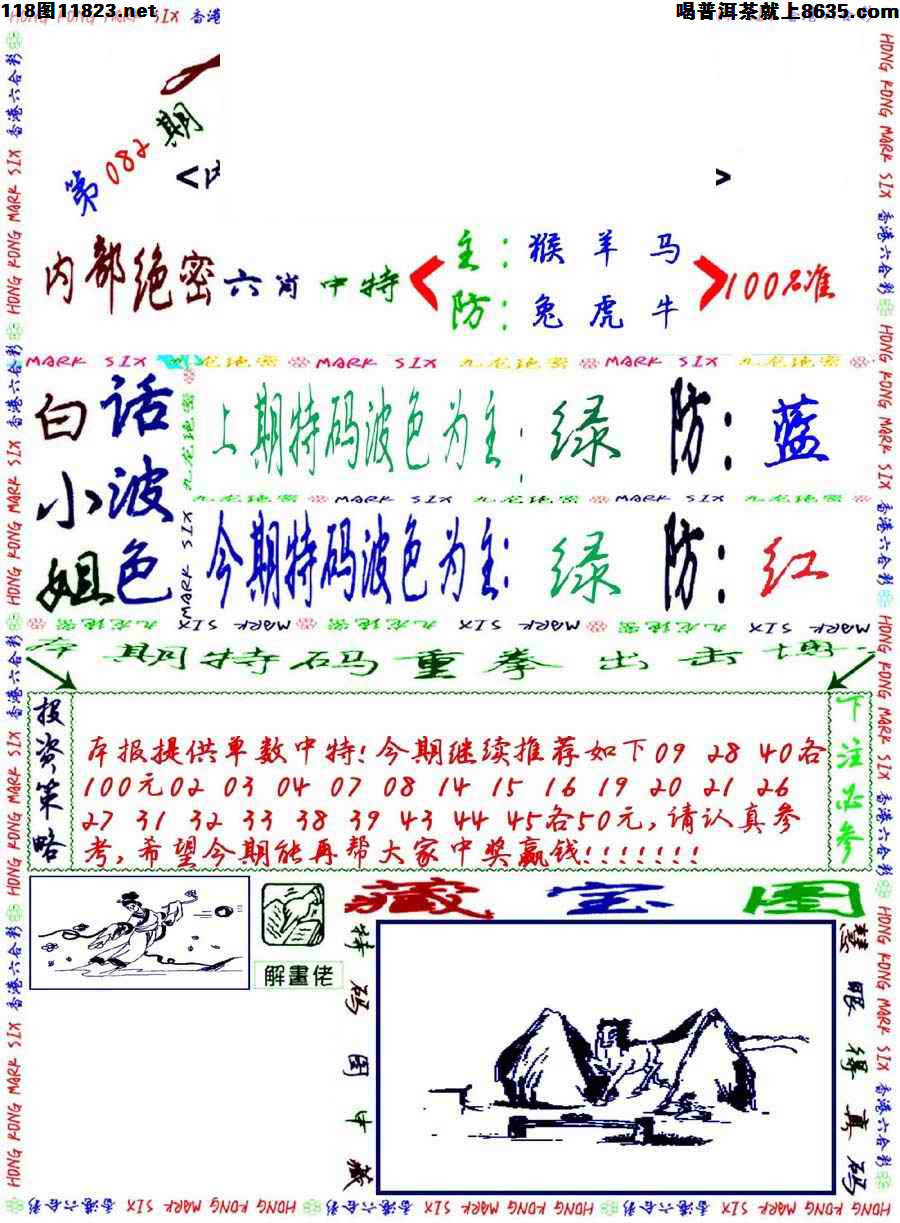 118图11823.net
喝普洱茶就上8635.com
第082期
<
>
内部绝密六肖中特
主：猴羊马
防：兔虎牛
100%准
MARK SIX 九龙绝密 MARK SIX 九龙绝密 MARK SIX 九龙绝密
白话小波姐色
上期特码波色为主：绿 防：蓝
九龙绝密 MARK SIX 九龙绝密 MARK SIX 九龙绝密
今期特码波色为主：绿 防：红
本期特码重拳出击
投资策略
本报提供单数中特!今期继续推荐如下09 28 40各
100元02 03 04 07 08 14 15 16 19 20 21 26
27 31 32 33 38 39 43 44 45各50元,请认真参
考,希望今期能再帮大家中奖赢钱!!!!!!!
下注必参
解畫佬
藏宝图
特码图中藏
慧眼得真码
HONG KONG MARK SIX 香港六合彩